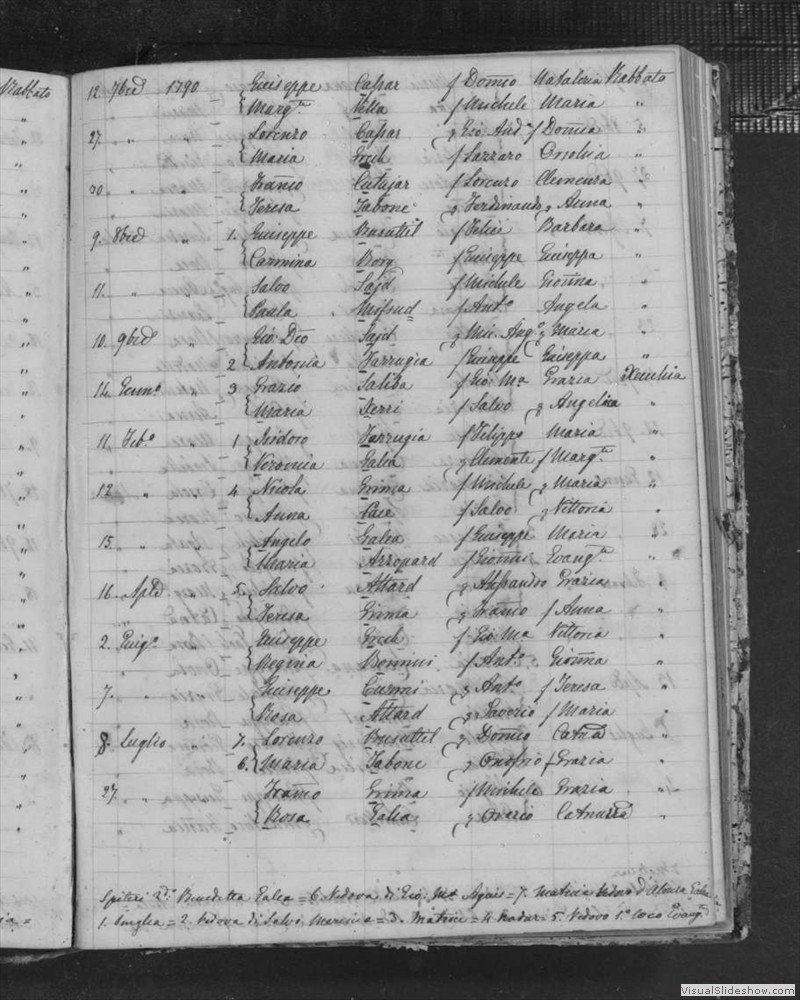 Rabbato
12. 7bre 1790 Giuseppe Cassar f Domco Natalizia Rabbato
Margta Vella f Michele Maria "
27. " " Lorenzo Cassar Gio: And f Domca "
Maria Grech f Lazzaro Orsolia "
30 " " Franco Cutajar f Lorenzo Clemenza "
Teresa Tabone q Ferdinando q Anna "
9. 8bre " 1. Giuseppe Busuttil f Felice Barbara "
Carmina Borg f Giuseppe Giuseppa "
11. " " Salvo Sajd f Michele Gionna "
Paula Mifsud f Anto Angela "
10. 9bre " Gio: Dco Sajd q Mic. Ango q Maria "
2 Antonia Farrugia f Giuseppe Giuseppa "
14. Genno " 3 Grazio Saliba f Gio Ma Grazia
Maria Sterri f Salvo q Angelica "
11. Febo " 1 Isidoro Farrugia f Felippo Maria "
Veronia Galea q Clemente f Margta "
12 " " 4. Nicola Grima f Michele q Maria "
Anna Pace f Salvo q Vittoria "
15. " " Angelo Galea f Giuseppe Maria "
Maria Azzopard f Gionni Evangta "
16. Aple " 5. Salvo Attard q Alessandro Grazia "
Teresa Grima q Franco f Anna "
2. Giugo " Giuseppe Grech f Gio: Ma Vittoria "
Regina Bonnici f Anto Gionna "
7. " " Giuseppe Curmi q Anto f Teresa "
Rosa Attard q Saverio f Maria "
8. Luglio " 7. Lorenzo Busuttil q Domco Catna "
6. Maria Tabone q Onofrio f Grazia "
27. " " Franco Grima f Michele Grazia "
Rosa Galea q Orazio "
Spiteri 2do Benedetta Galea = 6. Vedova di Gio: Ma Agius = 7. Vedovo
1. Senglea = 2. Vedova di Salvo = 3. = 4. Nadur 5. Vedovo 1o loco Evangta
VisualSlideshow.com